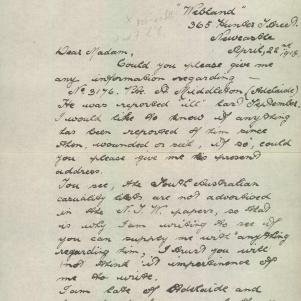 "Webland"
365 Hunter Street.
Newcastle
April, 22nd 1918.
Dear Madam,
Could you please give me
any information regarding —
No 3176. Pte. D. Middleton (Adelaide)
He was reported "ill" last September.
I would like to know if anything
has been reported of him since
then, wounded or sick, if so, could
you please give me his present
address.
You see, the South Australian
casualty lists are not advertised
in the N.S.W. papers, so that
is why I am writing to see if
you can supply me with anything
regarding him, I trust you will
not think it impertinence of
me to write.
I am late of Adelaide and